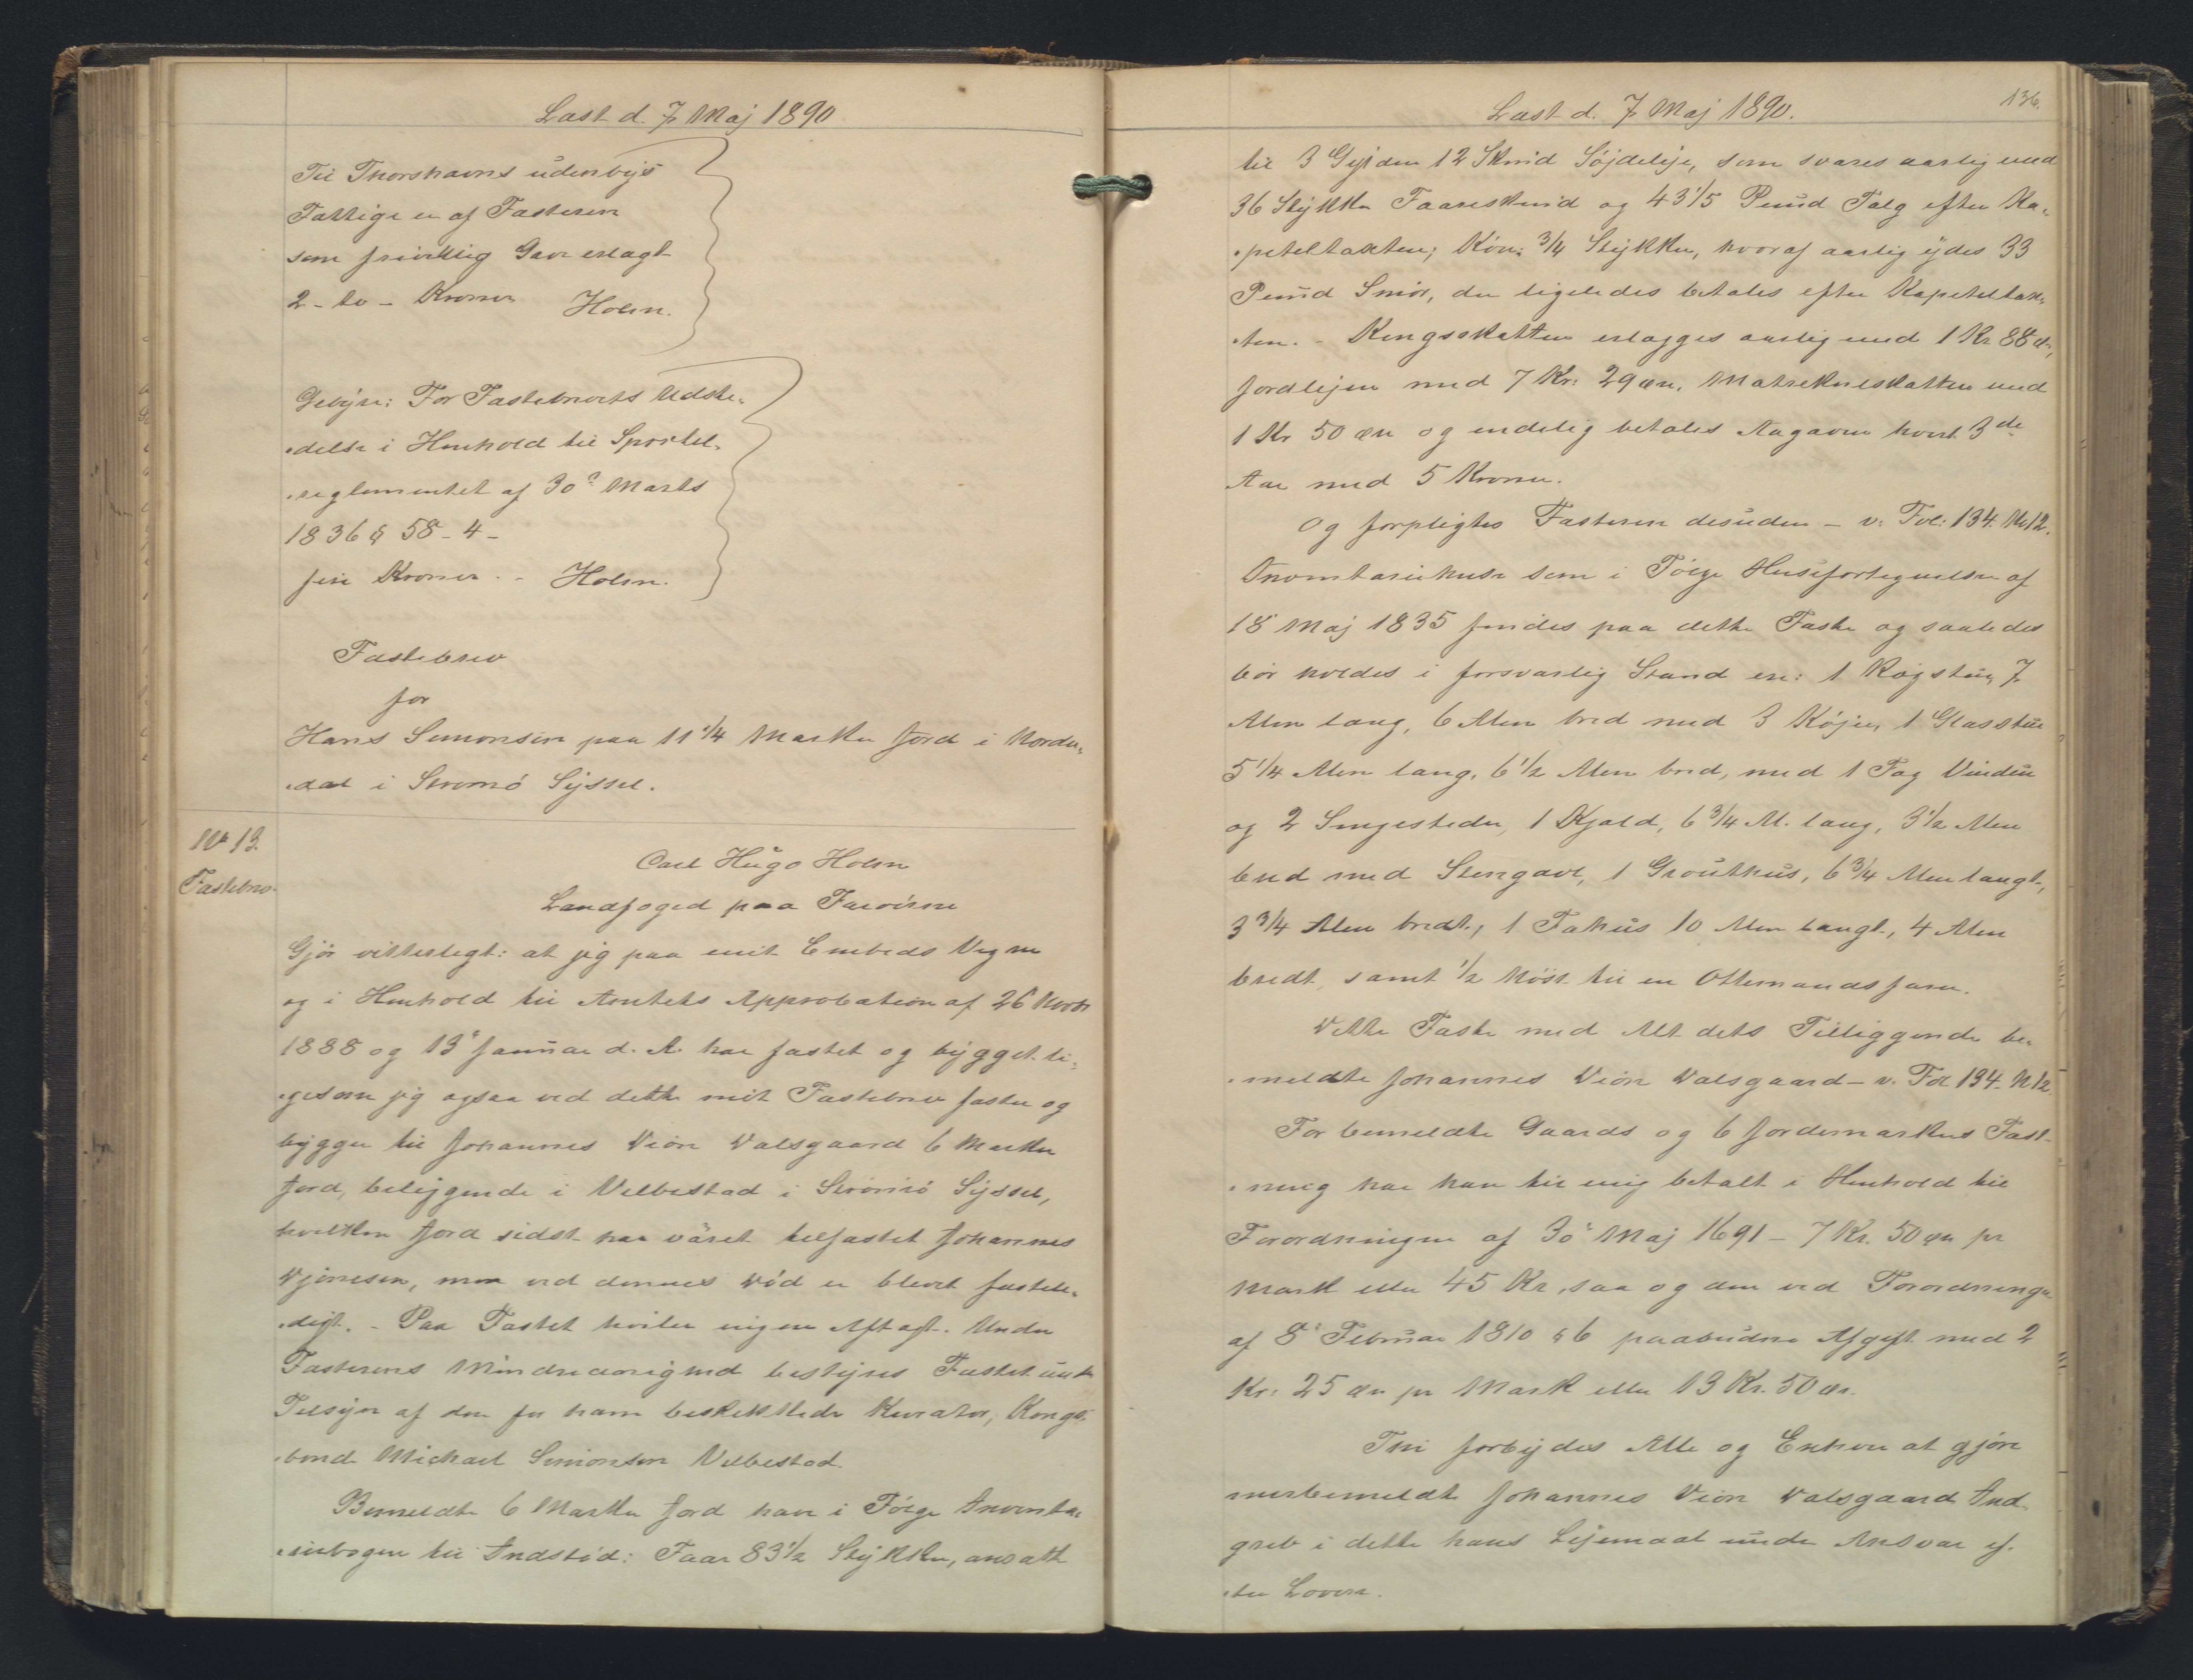 Læst d. 7 Maj 1890
Til Thorshavns udenbÿs
Fattige er af Fæsteren
som frivillig Gave erlagt
2 - to - Kroner Holm.
Gebÿr: For Fæstebrevets Udste-
-delse i Henhold til Sportel-
-reglementet af 30? Marts
1836 § 58 - 4 -
fire Kroner. - Holm.
Fæstebrev
for
Hans Simonsen paa 11 1/4 Marker Jord i Norder-
-dal i Strömö Sÿssel.
No 13.
Fæstebrev.
Carl Hugo Holm
Landfoged paa Færöerne
Gjör vitterligt: at jeg paa mit Embeds Vegne
og i Henhold til Amtets Approbation af 26 Novbr
1888 og 13' Januar d. A. har fæstet og bÿgget li-
-gesom jeg ogsaa ved dette mit Fæstebrev fæster og
bÿgger til Johannes Dion Dalsgaard 6 Marker
Jord, beliggende i Velbestad i Strömö Sÿssel,
hvilken Jord sidst har været tilfæstet Johannes
Djonesen, men ved dennes Död er blevet fæstele-
-digt. - Paa Fæstet hviler ingen Aftægt. Under
Fæsterens Mindreaarighed bestÿres Fæstet under
Tilsÿn af den for ham beskikkede Kurator, Kongs-
-bonde Michael Simonsen Velbestad.
Bemeldte 6 Marker Jord have i Fölge Inventa-
-riebogen til Indstöd: Faar 83 1/2 Stÿkker, ansatte
136.
Læst d. 7 Maj 1890.
til 3 Gylden 12 Skind Söjdeleje, som svares aarlig med
36 Stÿkker Faareskind og 43 1/5 Pund Talg efter Ka-
-pitelstaxten; Köer: 3/4 Stÿkker, hvoraf aarlig ÿdes 33
Pund Smör, der ligeledes betales efter Kapitelstax-
-ten. - Kongsskatten erlægges aarlig med 1 Kr 88 ör,
Jordlejen med 7 Kr: 29 öre, Matrikulskatten med
1 Kr 50 öre og endelig betales Aagaven hvert 3de
Aar med 5 Kroner.
Og forpligtes Fæsteren desuden - v: Fol: 134. No 12.
Inventariehuse som i Fölge Husefortegnelsen af
18 Maj 1835 findes paa dette Fæste og saaledes
bör holdes i forsvarlig Stand ere: 1 Rögstue, 7
Alen lang, 6 Alen bred med 3 Köjer, 1 Glasstue
5 1/4 Alen lang, 6 1/2 Alen bred, med 1 Fag Vindue
og 2 Sengesteder, 1 Kjald, 6 3/4 Al. lang, 3 1/2 Alen
bred med Stengavl, 1 Grouthus, 6 3/4 Alen langt,
3 3/4 Alen bredt, 1 Fæhus 10 Alen langt, 4 Alen
bredt, samt 1/2 Nöst til en Ottemandsfarer.
Dette Fæste med Alt dets Tilliggende be-
-meldte Johannes Dion Dalsgaard - v. Fol 134. N 12.
For bemeldte Gaards og 6 Jordemarkers Fæst-
-ning har han til mig betalt i Henhold til
Forordningen af 30' Maj 1691 - 7 Kr. 50 öre pr
Mark eller 45 Kr, saa og den ved Forordningen
af 8' Februar 1810 § 6 paabudne Afgift med 2
Kr: 25 öre pr Mark eller 13 Kr. 50 ör.
Thi forbÿdes Alle og Enhver at gjöre
merbemeldte Johannes Dion Dalsgaard Ind-
greb i dette hans Lejemaal under Ansvar ef-
-ter Loven.